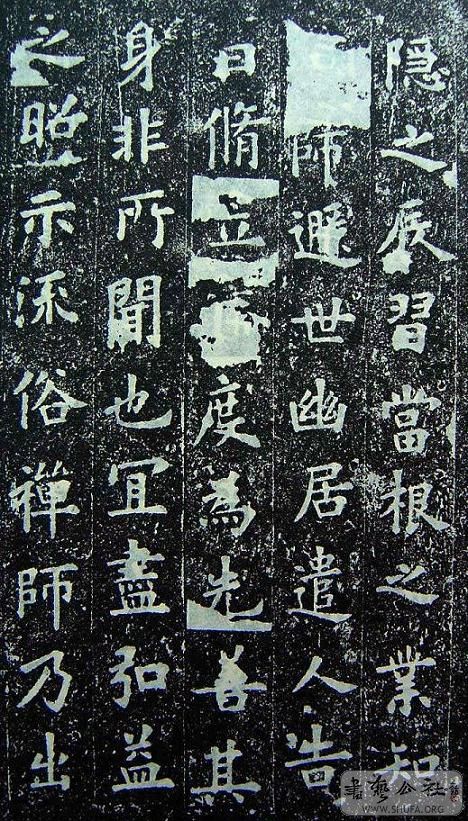 隐之習當根之業知
師遯世幽居遣人告
曰脩立度為先善其
身非所聞也冝盡弘益
之昭示流俗禪師乃出
書藝公社
WWW.SHUFA.ORG